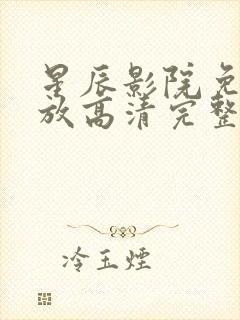 星辰影院免
放高清完整
冷玉煙